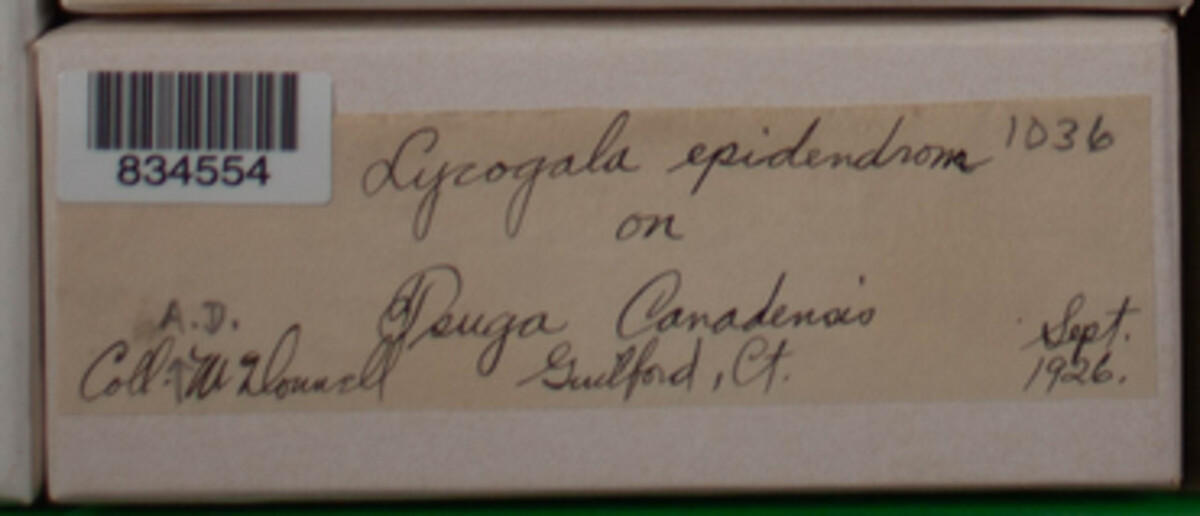 834554
Lycogala epidendrom 1036
on
Tsuga Canadensis
A.D.
Coll. McDonnell Guilford, Ct.
Sept.
1926.